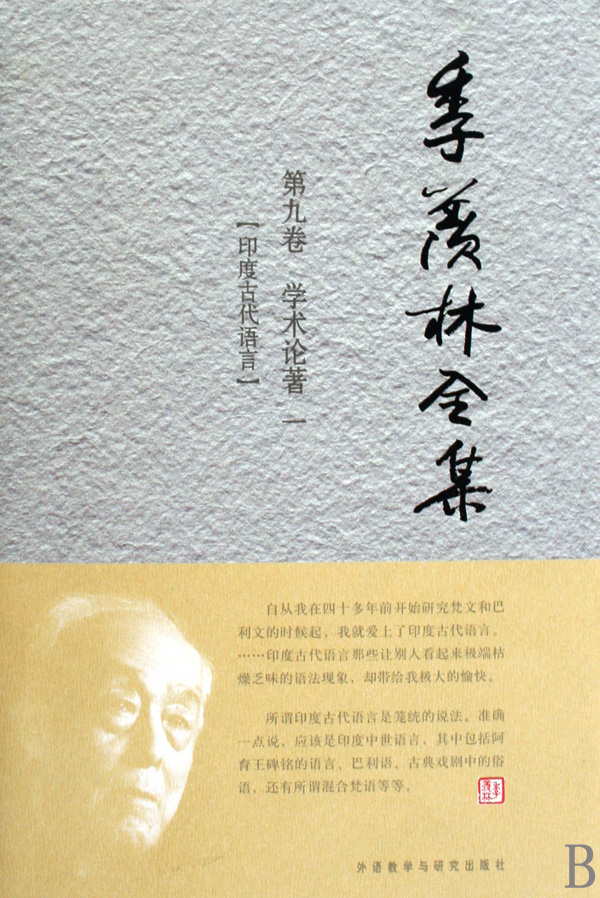 季羡林全集
第九卷 学术论著 一
【印度古代语言】
自从我在四十多年前开始研究梵文和巴
利文的时候起，我就爱上了印度古代语言。
……印度古代语言那些让别人看起来极端枯
燥乏味的语法现象，却带给我极大的愉快。
所谓印度古代语言是笼统的说法。准确
一点说，应该是印度中世语言，其中包括阿
育王碑铭的语言、巴利语、古典戏剧中的俗
语，还有所谓混合梵语等等。
季羡林
外语教学与研究出版社
B